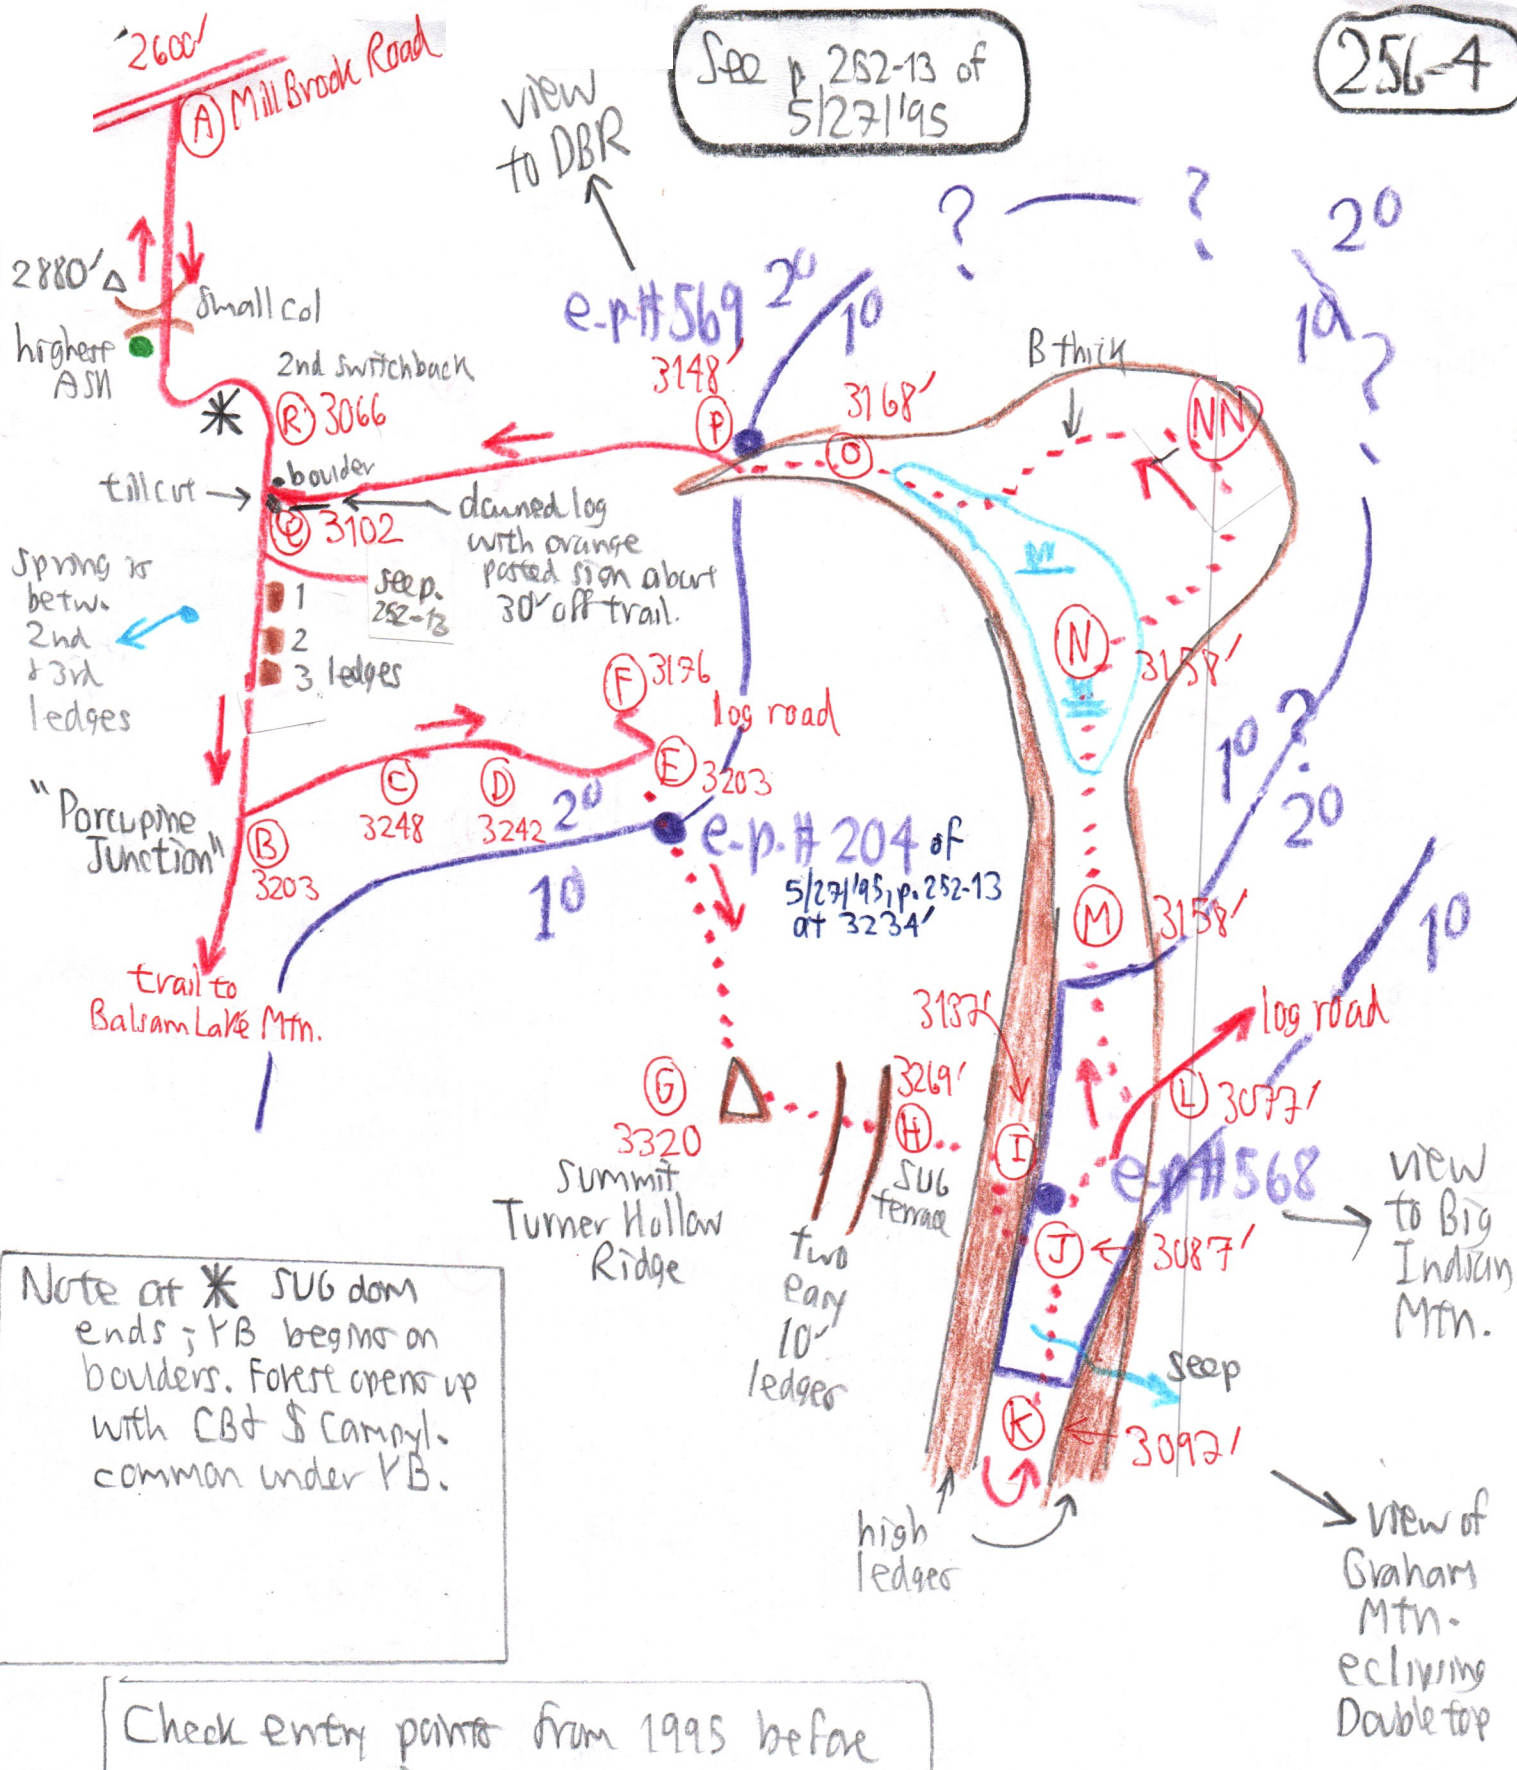 2600'
A Mill Brook Road
See p. 252-13 of
5/27/'95
256-4
view
to DBR
2880'
small col
highest
ASH
2nd switchback
R 3066
tillcut
boulder
3102
downed log
with orange
posted sign about
30' off trail.
see p.
252-13
spring is
betw.
2nd
& 3rd
ledges
1
2
3 ledges
e.p.# 569
3148'
P
2º
1º
3168'
O
? ?
2º
1º
?
B thick
NN
N
3158'
F 3176
log road
E 3203
C
3248
D
3242
2º
1º
"Porcupine
Junction"
B
3203
e.p.# 204 of
5/27/'95, p. 252-13
at 3234'
trail to
Balsam Lake Mtn.
1º ?
2º
M 3158'
1º
3137'
log road
L 3077'
G
3320
summit
Turner Hollow
Ridge
3269'
H
SUG
terrace
I
two
easy
10'
ledges
e.p.# 568
view
to Big
Indian
Mtn.
J 3087'
seep
K
3092'
high
ledges
view of
Graham
Mtn.
eclipsing
Doubletop
Note at * SUG dom
ends; YB begins on
boulders. Forest opens up
with CB& $ Campyl.
common under YB.
Check entry points from 1995 before